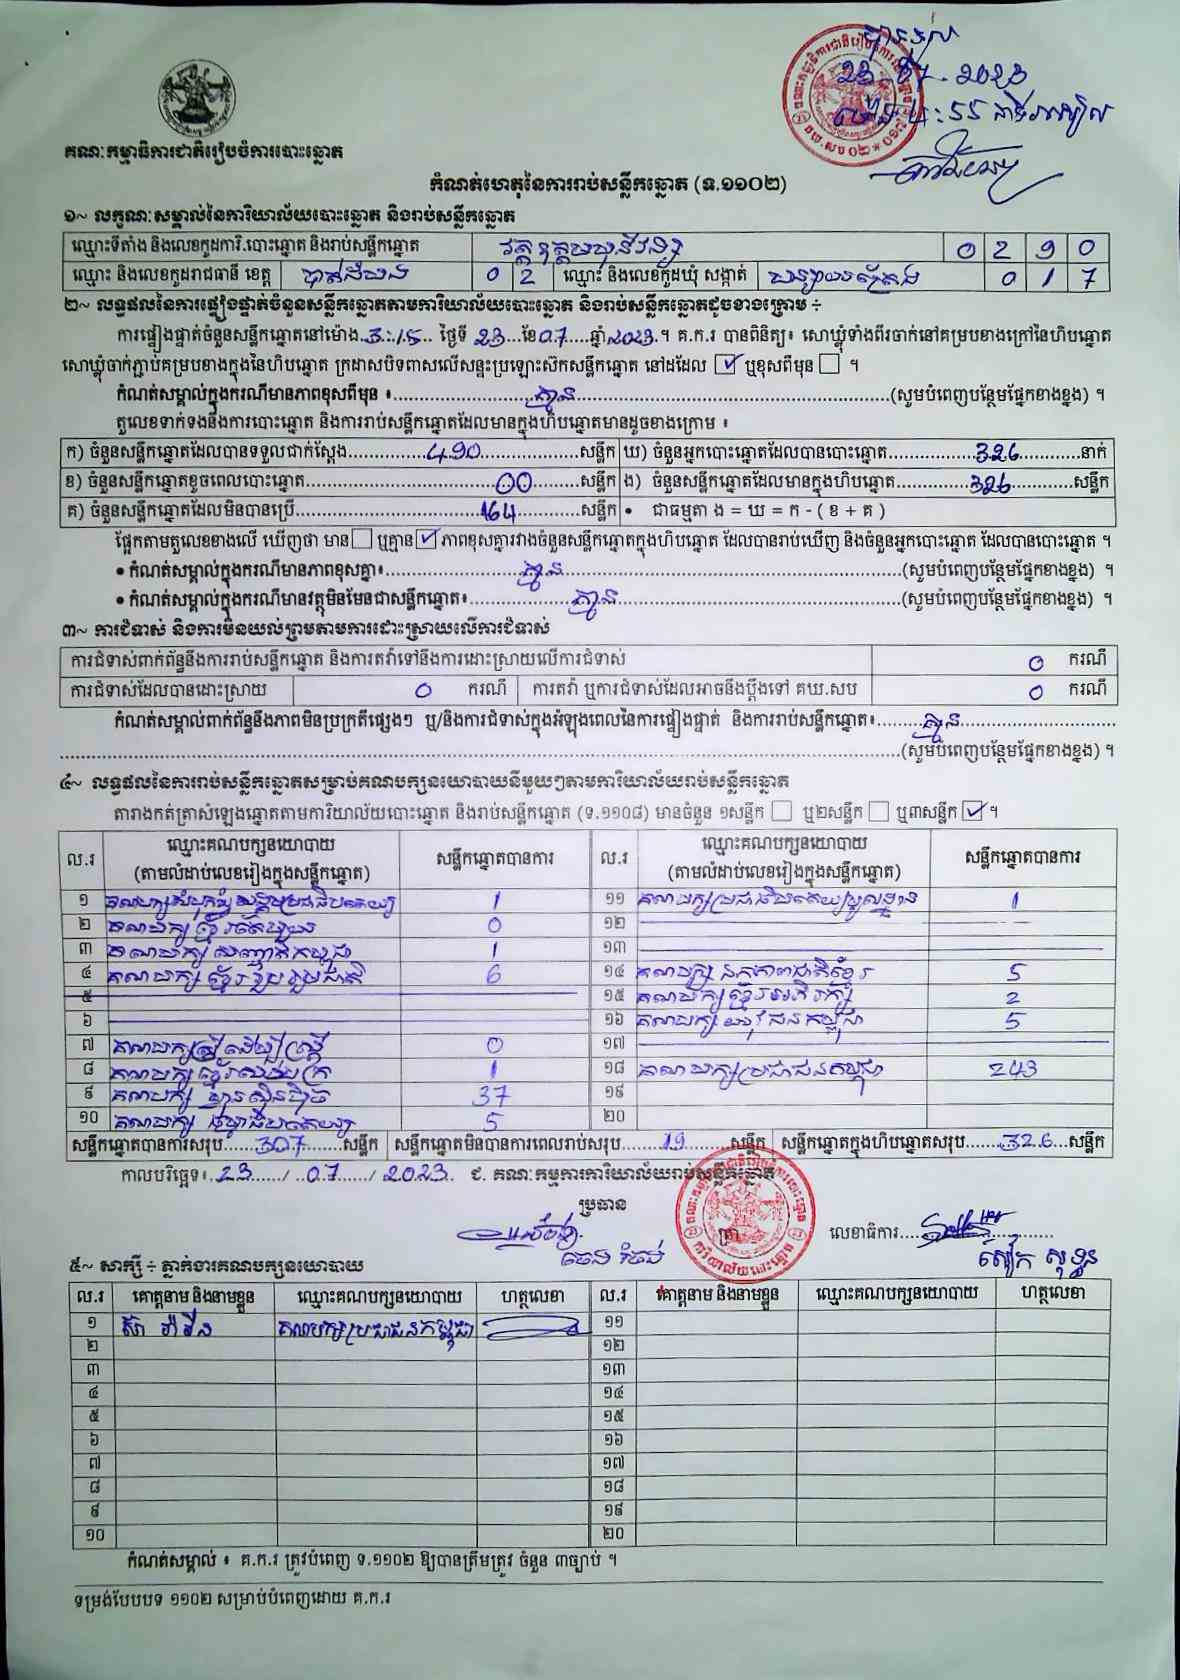 ២៣-០៧-២០២៣
គណៈកម្មាធិការជាតិរៀបចំការបោះឆ្នោត
កំណត់ហេតុនៃការរាប់សន្លឹកឆ្នោត (ទ.១១០២)
១~ លក្ខណៈសម្គាល់នៃការិយាល័យបោះឆ្នោត និងរាប់សន្លឹកឆ្នោត
ឈ្មោះទីតាំង និងលេខកូដការិ.បោះឆ្នោត និងរាប់សន្លឹកឆ្នោត 0 2 9 0
ឈ្មោះ និងលេខកូដរាជធានី ខេត្ត បាត់ដំបង 0 2 ឈ្មោះ និងលេខកូដឃុំ សង្កាត់ 0 1 7
២~ លទ្ធផលនៃការផ្ទៀងផ្ទាត់ចំនួនសន្លឹកឆ្នោតតាមការិយាល័យបោះឆ្នោត និងរាប់សន្លឹកឆ្នោតដូចខាងក្រោម ÷
ការផ្ទៀងផ្ទាត់ចំនួនសន្លឹកឆ្នោតនៅម៉ោង 3:15 ថ្ងៃទី 23 ខែ 07 ឆ្នាំ 2023 ។ គ.ក.រ បានពិនិត្យ៖ សោឃ្លុំទាំងពីរចាក់នៅគម្របខាងក្រៅនៃហិបឆ្នោត
សោឃ្លុំចាក់ភ្ជាប់គម្របខាងក្នុងនៃហិបឆ្នោត ក្រដាសបិទពាសលើសន្ទះប្រឡោះស៊កសន្លឹកឆ្នោត នៅដដែល ☑ ឬខុសពីមុន ☐ ។
កំណត់សម្គាល់ក្នុងករណីមានភាពខុសពីមុន ៖ គ្មាន (សូមបំពេញបន្ថែមផ្នែកខាងខ្នង) ។
តួលេខទាក់ទងនឹងការបោះឆ្នោត និងការរាប់សន្លឹកឆ្នោតដែលមានក្នុងហិបឆ្នោតមានដូចខាងក្រោម ៖
ក) ចំនួនសន្លឹកឆ្នោតដែលបានទទួលជាក់ស្តែង 490 សន្លឹក ឃ) ចំនួនអ្នកបោះឆ្នោតដែលបានបោះឆ្នោត 326 នាក់
ខ) ចំនួនសន្លឹកឆ្នោតខូចពេលបោះឆ្នោត 00 សន្លឹក ង) ចំនួនសន្លឹកឆ្នោតដែលមានក្នុងហិបឆ្នោត 326 សន្លឹក
គ) ចំនួនសន្លឹកឆ្នោតដែលមិនបានប្រើ 164 សន្លឹក • ជាធម្មតា ង = ឃ = ក - ( ខ + គ )
ផ្អែកតាមតួលេខខាងលើ ឃើញថា មាន ☐ ឬគ្មាន ☑ ភាពខុសគ្នារវាងចំនួនសន្លឹកឆ្នោតក្នុងហិបឆ្នោត ដែលបានរាប់ឃើញ និងចំនួនអ្នកបោះឆ្នោត ដែលបានបោះឆ្នោត ។
• កំណត់សម្គាល់ក្នុងករណីមានភាពខុសគ្នា៖ គ្មាន (សូមបំពេញបន្ថែមផ្នែកខាងខ្នង) ។
• កំណត់សម្គាល់ក្នុងករណីមានវត្ថុមិនមែនជាសន្លឹកឆ្នោត៖ គ្មាន (សូមបំពេញបន្ថែមផ្នែកខាងខ្នង) ។
៣~ ការជំទាស់ និងការមិនយល់ព្រមតាមការដោះស្រាយលើការជំទាស់
ការជំទាស់ពាក់ព័ន្ធនឹងការរាប់សន្លឹកឆ្នោត និងការតវ៉ាទៅនឹងការដោះស្រាយលើការជំទាស់ 0 ករណី
ការជំទាស់ដែលបានដោះស្រាយ 0 ករណី ការតវ៉ា ឬការជំទាស់ដែលអាចនឹងប្តឹងទៅ គឃ.សប 0 ករណី
កំណត់សម្គាល់ពាក់ព័ន្ធនឹងភាពមិនប្រក្រតីផ្សេងៗ ឬ/និងការជំទាស់ក្នុងអំឡុងពេលនៃការផ្ទៀងផ្ទាត់ និងការរាប់សន្លឹកឆ្នោត៖ គ្មាន
(សូមបំពេញបន្ថែមផ្នែកខាងខ្នង) ។
៤~ លទ្ធផលនៃការរាប់សន្លឹកឆ្នោតសម្រាប់គណបក្សនយោបាយនីមួយៗតាមការិយាល័យរាប់សន្លឹកឆ្នោត
តារាងកត់ត្រាសំឡេងឆ្នោតតាមការិយាល័យបោះឆ្នោត និងរាប់សន្លឹកឆ្នោត (ទ.១១០៨) មានចំនួន ១សន្លឹក ☐ ឬ២សន្លឹក ☐ ឬ៣សន្លឹក ☑ ។
ល.រ ឈ្មោះគណបក្សនយោបាយ (តាមលំដាប់លេខរៀងក្នុងសន្លឹកឆ្នោត) សន្លឹកឆ្នោតបានការ ល.រ ឈ្មោះគណបក្សនយោបាយ (តាមលំដាប់លេខរៀងក្នុងសន្លឹកឆ្នោត) សន្លឹកឆ្នោតបានការ
១ គណបក្សសំបុកឃ្មុំសង្គមប្រជាធិបតេយ្យ 1 ១១ គណបក្សប្រជាធិបតេយ្យមូលដ្ឋាន 1
២ គណបក្សខ្មែរតែមួយ 0 ១២
៣ គណបក្សសញ្ជាតិកម្ពុជា 1 ១៣
៤ គណបក្សខ្មែររួបរួមជាតិ 6 ១៤ គណបក្សឯកភាពជាតិខ្មែរ 5
៥ ១៥ គណបក្សខ្មែរអភិរក្ស 2
៦ ១៦ គណបក្សយុវជនកម្ពុជា 5
៧ គណបក្សស្រ្តីដើម្បីស្រ្តី 0 ១៧
៨ គណបក្ស 1 ១៨ គណបក្សប្រជាជនកម្ពុជា 243
៩ គណបក្សហ៊្វុនស៊ិនប៉ិច 37 ១៩
១០ គណបក្សធម្មាធិបតេយ្យ 5 ២០
សន្លឹកឆ្នោតបានការសរុប 307 សន្លឹក សន្លឹកឆ្នោតមិនបានការពេលរាប់សរុប 19 សន្លឹក សន្លឹកឆ្នោតក្នុងហិបឆ្នោតសរុប 326 សន្លឹក
កាលបរិច្ឆេទ៖ 23 / 07 / 2023 ជ. គណៈកម្មការការិយាល័យរាប់សន្លឹកឆ្នោត
ប្រធាន
លេខាធិការ
៥~ សាក្សី ÷ ភ្នាក់ងារគណបក្សនយោបាយ
ល.រ គោត្តនាម និងនាមខ្លួន ឈ្មោះគណបក្សនយោបាយ ហត្ថលេខា ល.រ គោត្តនាម និងនាមខ្លួន ឈ្មោះគណបក្សនយោបាយ ហត្ថលេខា
១ គណបក្សប្រជាជនកម្ពុជា ១១
២ ១២
៣ ១៣
៤ ១៤
៥ ១៥
៦ ១៦
៧ ១៧
៨ ១៨
៩ ១៩
១០ ២០
កំណត់សម្គាល់ ៖ គ.ក.រ ត្រូវបំពេញ ទ.១១០២ ឱ្យបានត្រឹមត្រូវ ចំនួន ៣ច្បាប់ ។
ទម្រង់បែបបទ ១១០២ សម្រាប់បំពេញដោយ គ.ក.រ